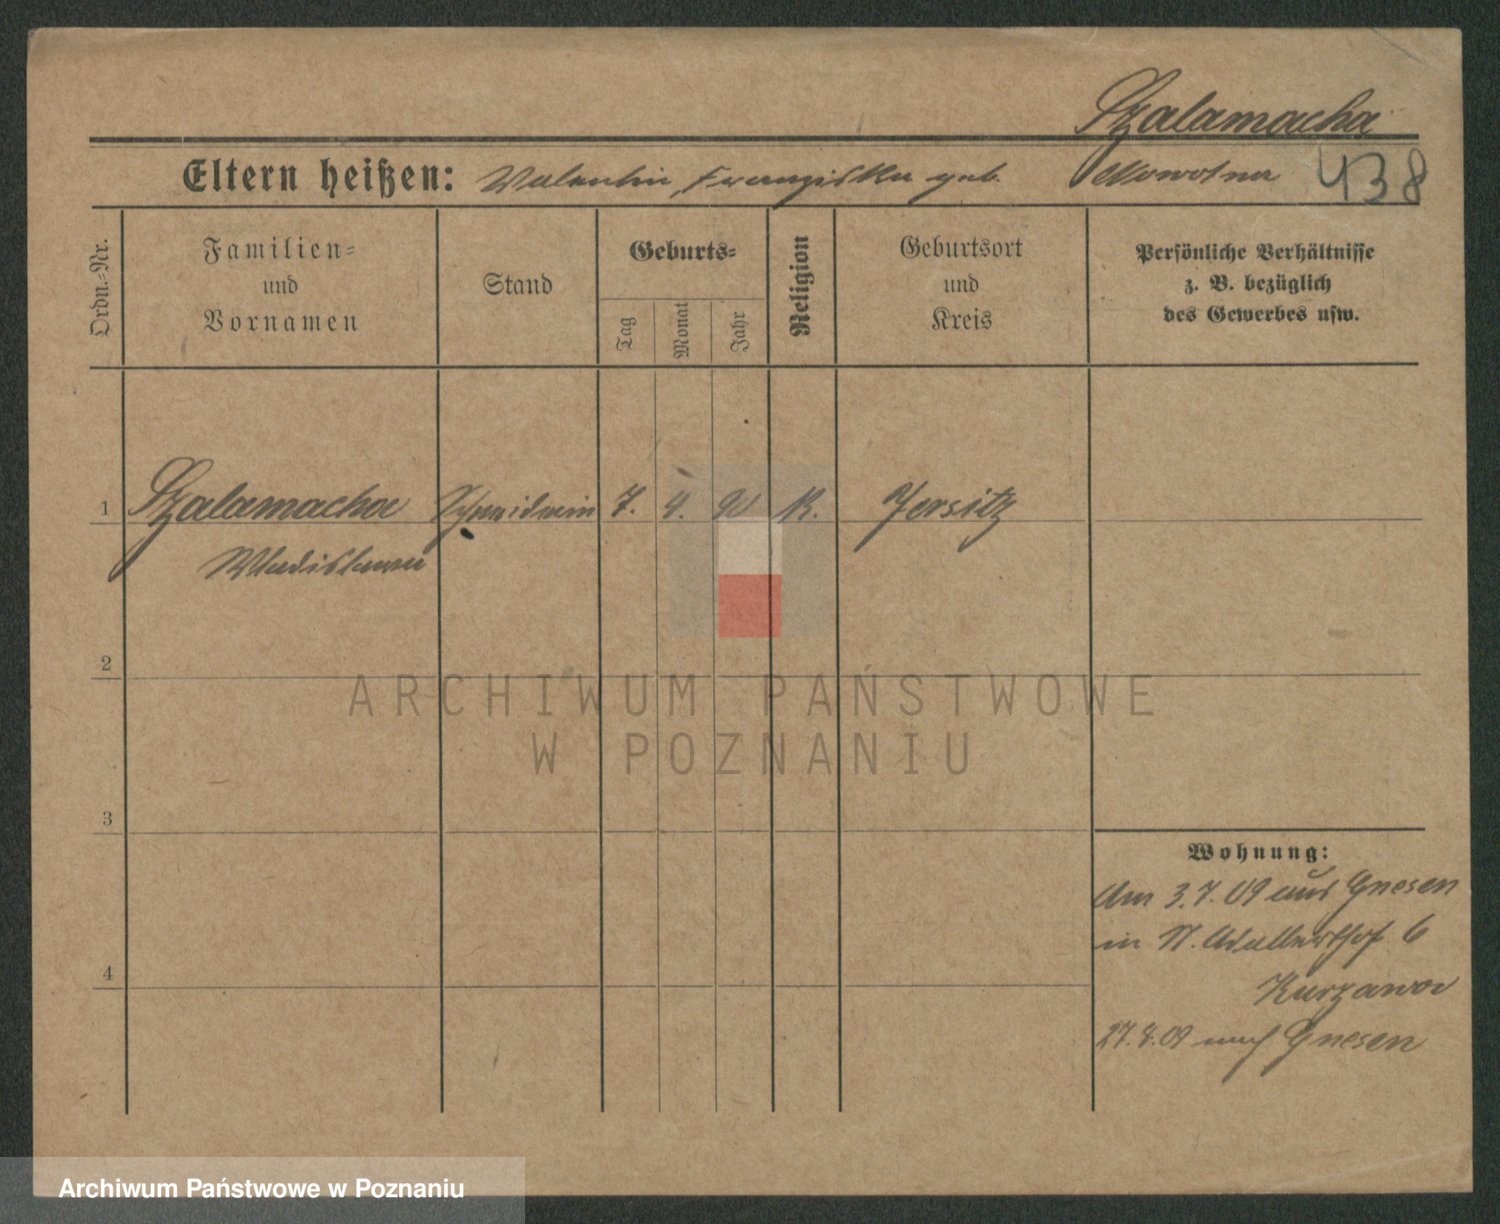 Szalamacha
Eltern heißen: Valentin Franziska geb. Nowotna 438
Ordn.=Nr.
Familien=
und
Vornamen
Stand
Geburts=
Tag
Monat
Jahr
Religion
Geburtsort
und
Kreis
Persönliche Verhältnisse
z. B. bezüglich
des Gewerbes usw.
1 Szalamacha Schneiderin 7. 4. K. Jersitz
Wladislawa
2
3
4
Wohnung:
Am 3.7.09 aus Gnesen
in St. Adalbertstr 6
Kurzawa
27.8.09 nach Gnesen
ARCHIWUM PAŃSTWOWE
W POZNANIU
Archiwum Państwowe w Poznaniu